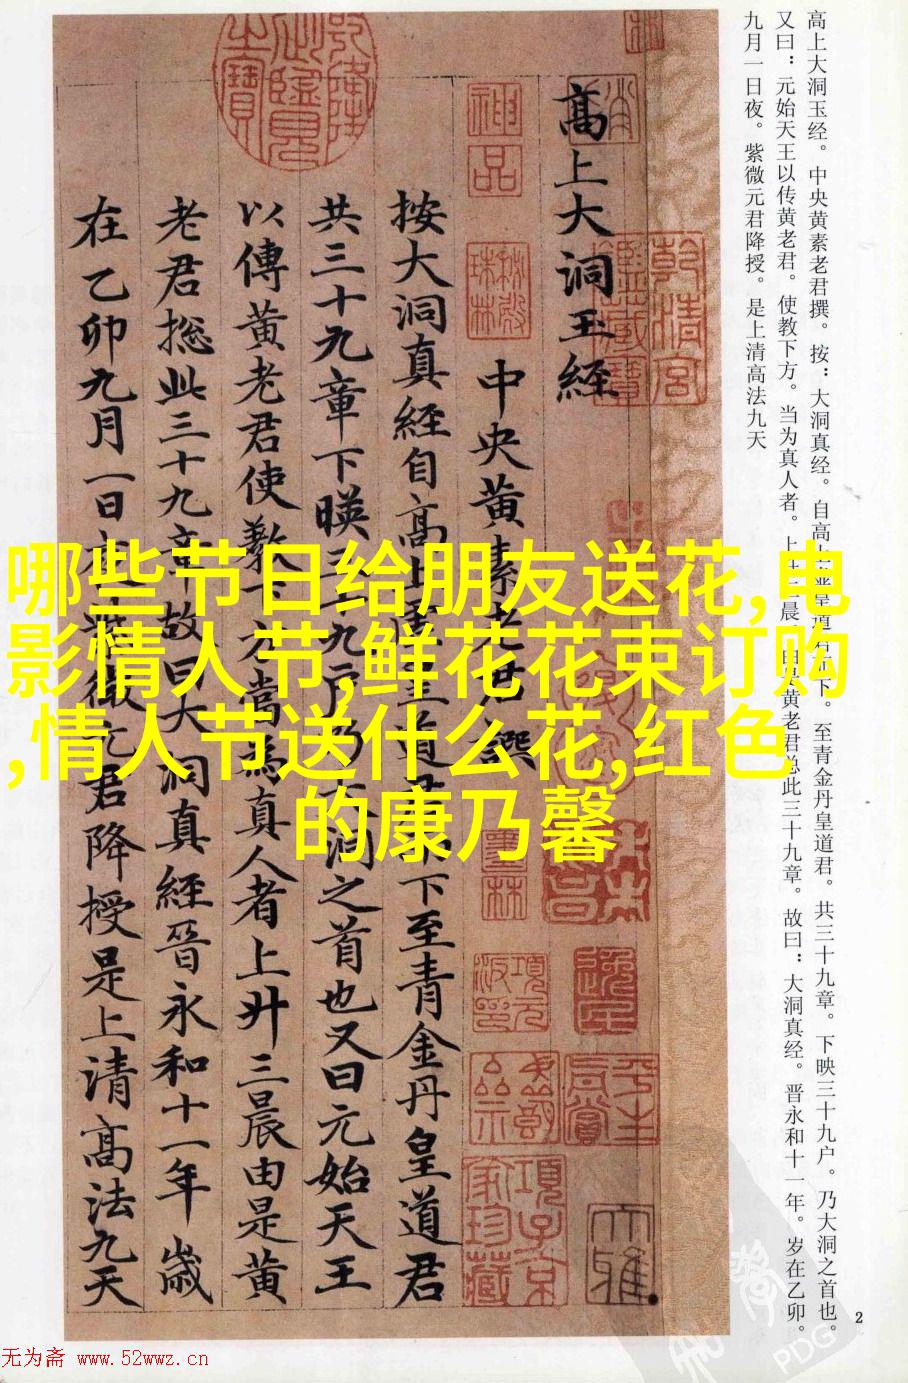 高上大洞玉经。中央黄素老君撰。按：大洞真经。自高上
下。至青金丹皇道君。共三十九章。下映三十九户。乃大洞之首也。
又曰：元始天王以传黄老君。使教下方。当为真人者。上
黄老君总此三十九章。故曰：大洞真经。晋永和十一年。岁在乙卯。
九月一日夜。紫微元君降授。是上清高法九天
高上大洞玉經
中央黄素老君撰
按大洞真經自高上
下至青金丹皇道君
共三十九章下暎三十九户乃大洞之首也又曰元始天王
以傳黄老君使教下方當為真人者上升三晨由是黄
老君捴此三十九章故曰大洞真經晉永和十一年歲
在乙卯九月一日夜紫微元君降授是上清高法九天
乾隆御覽之寶
神品
乾清宮鑑藏寶
哪些节日给朋友送花,电
影情人节,鲜花花束订购
,情人节送什么花,红色
的康乃馨
2
PDG
无为斋 www.52wwz.cn